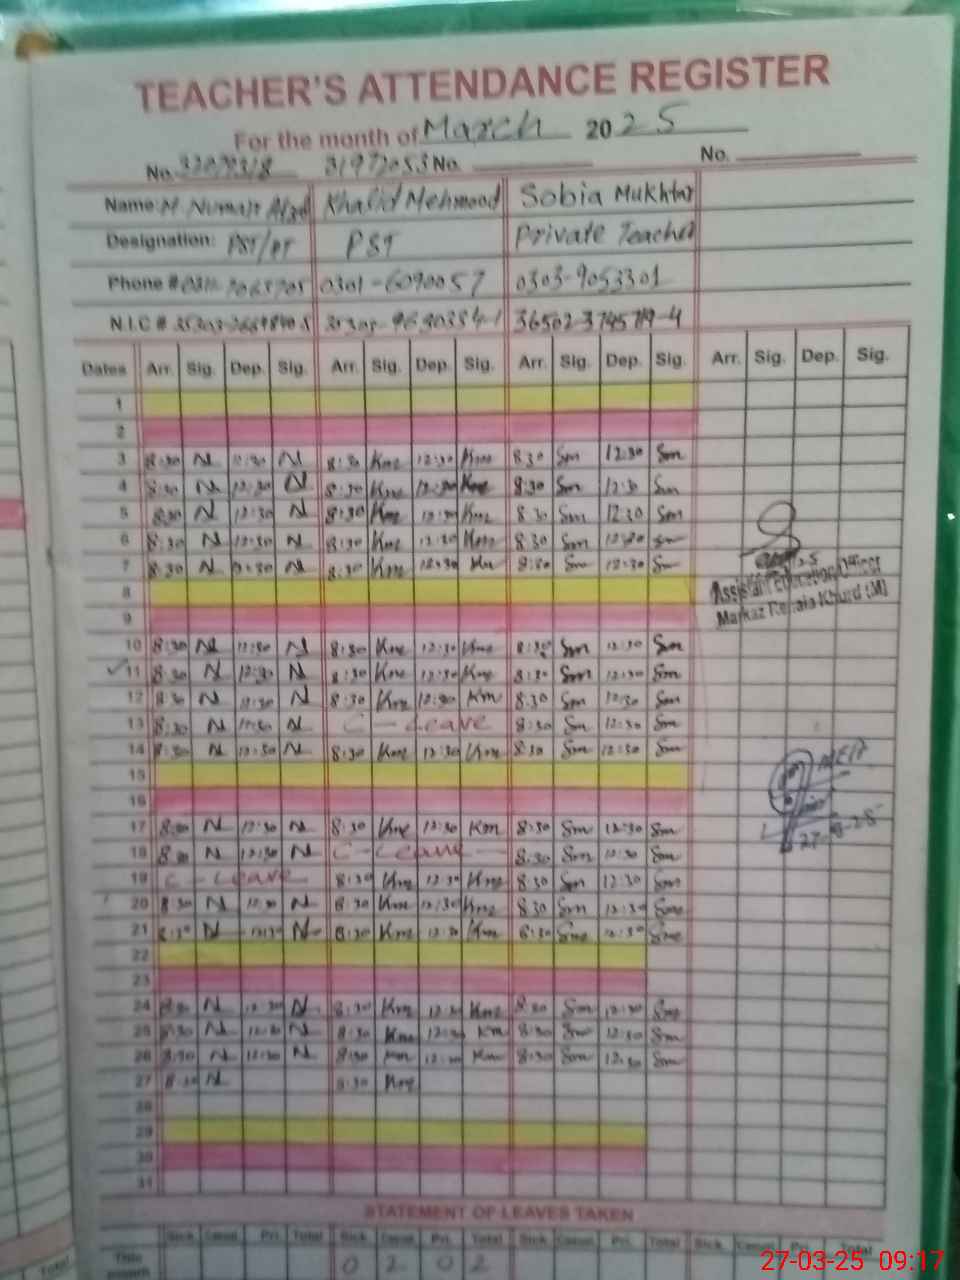 TEACHER'S ATTENDANCE REGISTER
For the month of March 2025
No. No. No.
Name: M Numan Khalid Mehmood Sobia Mukhtar
Designation: PST/PT PST Private Teacher
Phone # 0301-6090057 0303-9053301
N.I.C #
Dates Arr. Sig. Dep. Sig. Arr. Sig. Dep. Sig. Arr. Sig. Dep. Sig. Arr. Sig. Dep. Sig.
1
2
3 8:30 N 12:30 N 8:30 Km 12:30 Km 8:30 Sm 12:30 Sm
4 8:30 N 12:30 N 8:30 Km 12:30 Km 8:30 Sm 12:30 Sm
5 8:30 N 12:30 N 8:30 Km 12:30 Km 8:30 Sm 12:30 Sm
6 8:30 N 12:30 N 8:30 Km 12:30 Km 8:30 Sm 12:30 Sm
7 8:30 N 12:30 N 8:30 Km 12:30 Km 8:30 Sm 12:30 Sm
Assistant Education Officer
8
Markaz Khurd (M)
9
10 8:30 N 12:30 N 8:30 Km 12:30 Km 8:30 Sm 12:30 Sm
11 8:30 N 12:30 N 8:30 Km 12:30 Km 8:30 Sm 12:30 Sm
12 8:30 N 12:30 N 8:30 Km 12:30 Km 8:30 Sm 12:30 Sm
13 8:30 N 12:30 N C - Leave 8:30 Sm 12:30 Sm
14 8:30 N 12:30 N 8:30 Km 12:30 Km 8:30 Sm 12:30 Sm
15
16
17 8:30 N 12:30 N 8:30 Km 12:30 Km 8:30 Sm 12:30 Sm
18 8:30 N 12:30 N C - Leave 8:30 Sm 12:30 Sm
19 C - Leave 8:30 Km 12:30 Km 8:30 Sm 12:30 Sm
20 8:30 N 12:30 N 8:30 Km 12:30 Km 8:30 Sm 12:30 Sm
21 8:30 N 12:30 N 8:30 Km 12:30 Km 8:30 Sm 12:30 Sm
22
23
24 8:30 N 12:30 N 8:30 Km 12:30 Km 8:30 Sm 12:30 Sm
25 8:30 N 12:30 N 8:30 Km 12:30 Km 8:30 Sm 12:30 Sm
26 8:30 N 12:30 N 8:30 Km 12:30 Km 8:30 Sm 12:30 Sm
27 8:30 N 8:30 Km
28
29
30
31
STATEMENT OF LEAVES TAKEN
Sick Casual Pri. Total Sick Casual Pri. Total Sick Casual Pri. Total Sick Casual Pri. Total
This month 0 2 0 2
27-03-25 09:17